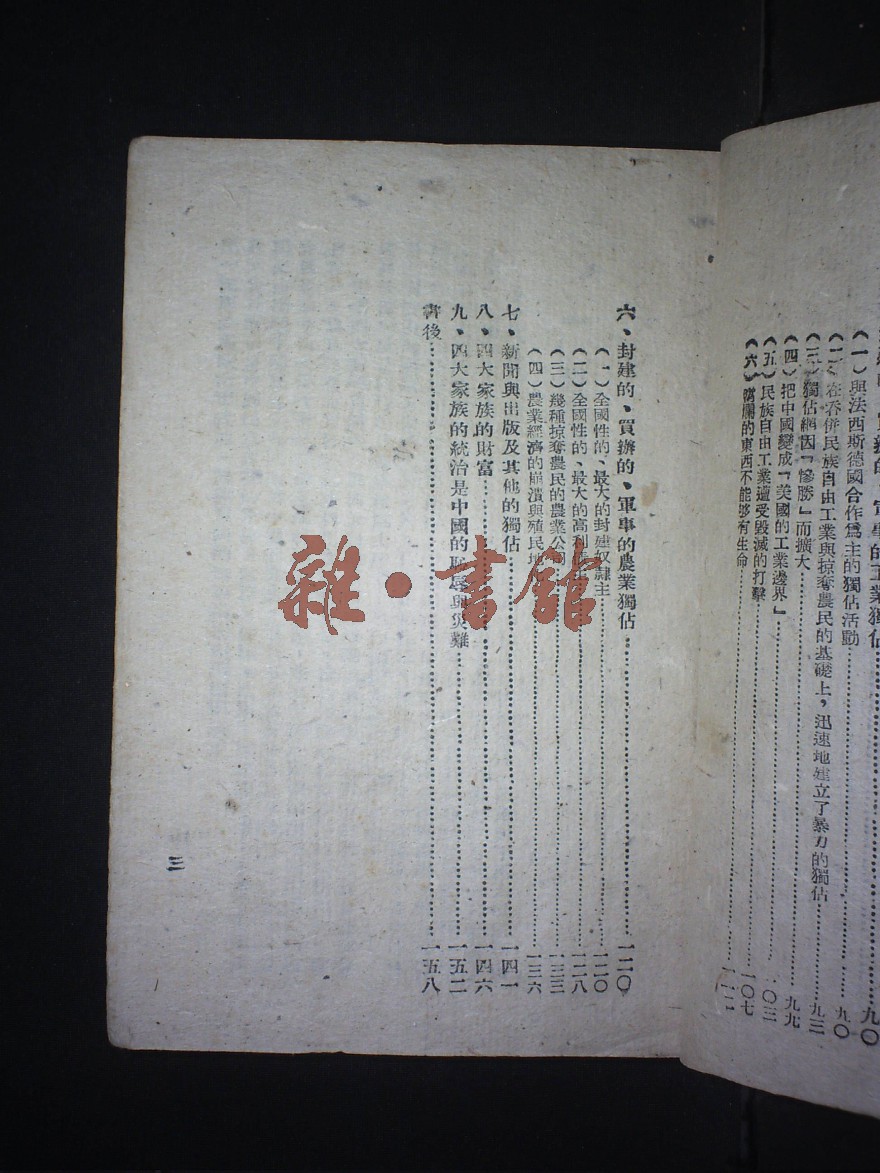 買辦的、軍事的工業獨佔……九〇
（一）與法西斯德國合作爲主的獨佔活動……九〇
（二）在吞併民族自由工業與掠奪農民的基礎上，迅速地建立了暴力的獨佔……九三
（三）獨佔網因「慘勝」而擴大……九九
（四）把中國變成「美國的工業邊界」……一〇三
（五）民族自由工業遭受毀滅的打擊……一〇七
（六）腐爛的東西不能够有生命……一一二
六、封建的、買辦的、軍事的農業獨佔……一二〇
（一）全國性的、最大的封建奴隸主……一二〇
（二）全國性的、最大的高利……一二八
（三）幾種掠奪農民的農業公司……一三三
（四）農業經濟的崩潰與殖民地……一三六
七、新聞與出版及其他的獨佔……一四一
八、四大家族的財富……一四六
九、四大家族的統治是中國的恥辱與災難……一五二
書後……一五八
三
雜·書館